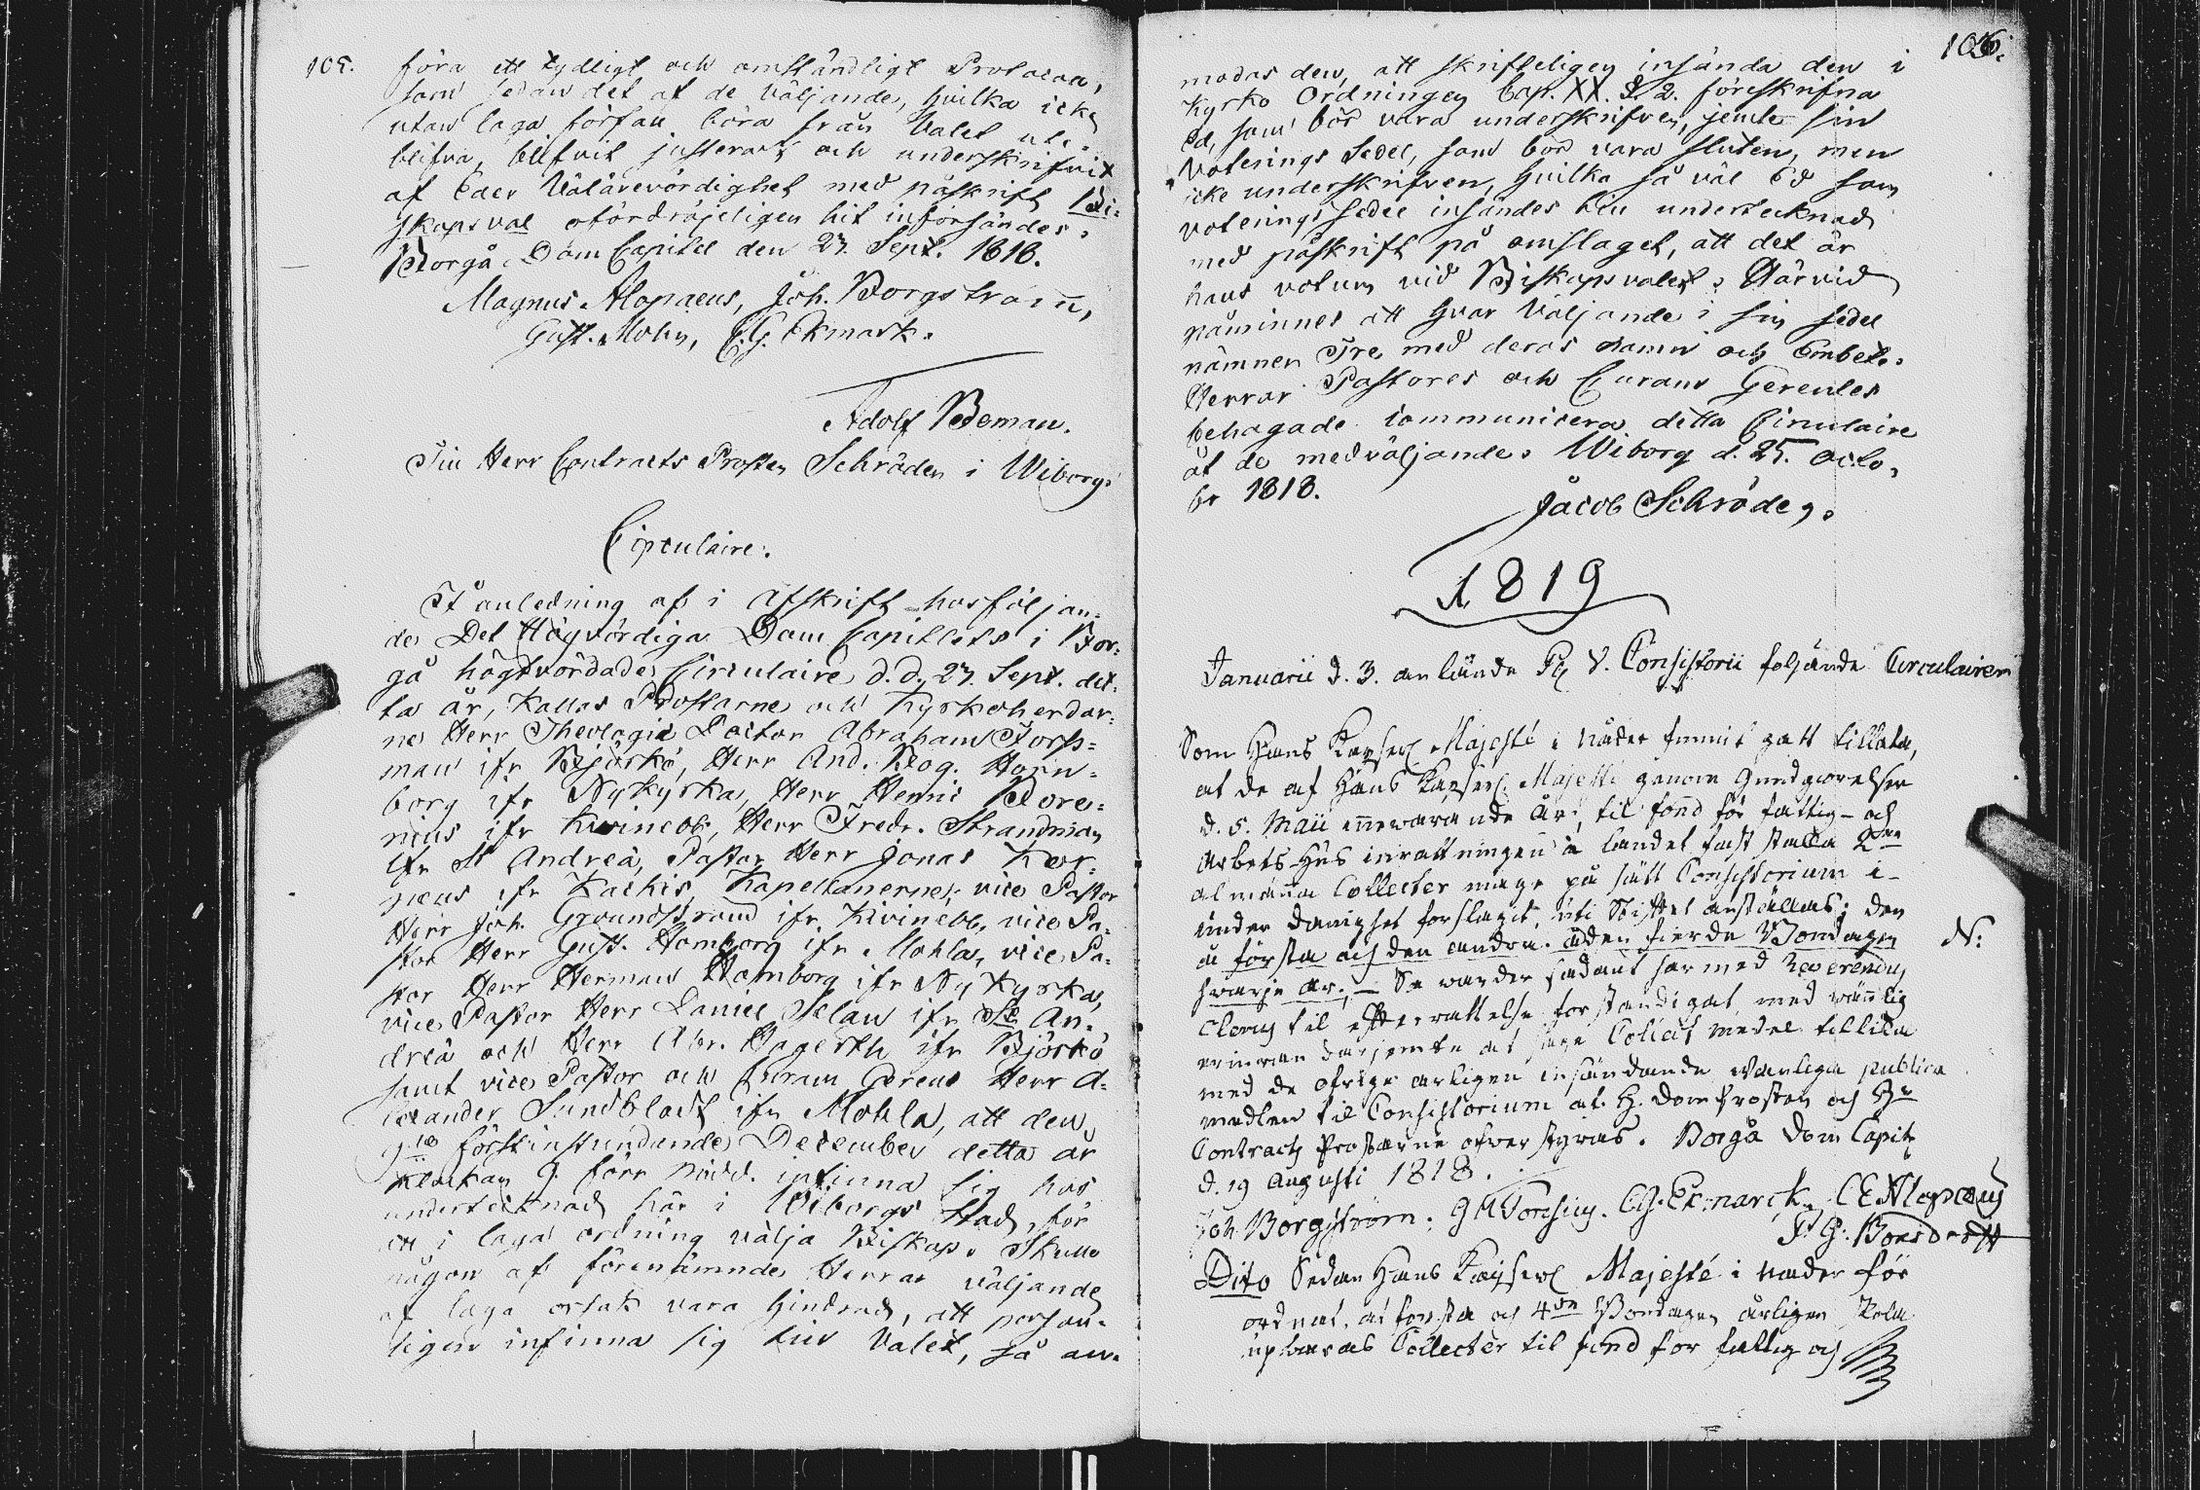 105.
föra ett tydligt och omständligt Protocoll,
som sedan det af de Väljande, hvilka icke
utan laga förfall böra från Valet ute-
blifva, blifvit justeradt och underskrifvit
af Eder Välärevördighet med påskrift Bi-
skopsval ofördröjeligen hit införsändes.
Borgå Dom Capitel den 23. Sept. 1818.
Magnus Alopaeus, Joh. Borgström,
Gust. Molin, C.G. Ekmark.
Adolf Boman.
Till Herr Contracts Prosten Schröder i Wiborg.
Circulaire.
I anledning af i Afskrift hosföljan-
de Det Högvördiga Dom Capitlets i Bor-
gå högtvördade Circulaire d.d. 23. Sept. det-
ta år, kallas Prostarne och Kyrkoherdar-
ne Herr Theologie Doctor Abraham Forss-
man ifr Björkö, Herr And. Horn-
borg ifr Nykyrka, Herr Henric Bore-
nius ifr Kivineb, Herr Fredr. Strandman
ifr St Andreà, Pastor Herr Jonas
ifr Kackis, Kapellanerne, vice Pastor
Herr Joh. Grundstrand ifr Kivineb, vice Pa-
stor Herr Gust. Homborg ifr Mohla, vice Pa-
stor Herr Herman Homborg ifr Ny Kyrka,
vice Pastor Herr Daniel Selan ifr St An-
dreà och Herr Abr. Hagerth ifr Björkö
samt vice Pastor och Curam Gerens Herr A-
lexander Sundbladt ifr Mohla, att den
förstinstundande December detta år
klockan 9 förr midd. infinna sig hos
undertecknad här i Wiborgs Stad, för
att i laga ordning välja Biskop. Skulle
någon af förenämnde Herrar väljande
af laga orsak vara hindrad, att person-
ligen infinna sig till Valet, så an-
106.
modas den, att skrifteligen insända den i
Kyrko Ordningen Cap. XX. §. 2. föreskrifna
Ed, som bör vara underskrifven, jemte sin
Voterings Sedel, som bör vara sluten, men
icke underskrifven, hvilka så väl Ed som
voteringssedel insändes till undertecknad
med påskrift på omslaget, att det är
hans votum vid Biskopsvalet. Härvid
påminnes att hvar Väljande i sin sedel
nämner Tre med deras namn och Embete.
Herrar Pastores och Curam Gerentes
behagade communicera detta Circulaire
åt de medväljande. Wiborg d. 25. Octo-
br 1818.
Jacob Schröder.
1819
Januarii d. 3. anlände V. Consistorii följande Circulairer
Som Hans Kejserl. Majestè i nåder funnit godt tillåta,
at de af Hans Kejserl. Majestè genom Kundgörelsen
d. 5. Maii innevarande år, til fond för fattig- och
arbets-Hus inrättningen i landet fast stälda 2ne
almänna Collecter måge på sätt Consistorium i
underdånighet förslagit, uti Stiftet anställas; den
ena första och den andra åden fierde Böndagen
hvarje år; — Så varder sådant har med Reverendus
N:
Clerus til efterrättelse förständigat med vänlig
erinran därjemte at sage Collect medel tillika
med de öfrige årligen insändande vanliga publica
medlen til Consistorium af H. Dom Prosten och Hr
Contracts Prostarne öfver styras. Borgå Dom Capitl
d. 19 Augusti 1818.
Joh. Borgström. C.G. Ekmarck. C E Alopæus
Dito Sedan Hans Kejserl Majestè i nåder för
ordnat, at första och 4de Böndagen årligen skola
upbäras Collecter til fond för fattig och